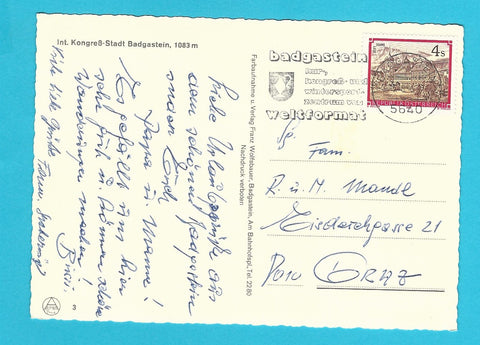 Int. Kongreß-Stadt Badgastein, 1083 m
Liebe Urlaubsgrüße aus
dem schönen Badgastein
senden Euch
Papa u. Mama!
Es gefällt uns hier
sehr gut u. können schöne
Wanderungen machen!
Bussi
Viele liebe Grüße Fam.
Farbaufnahme u. Verlag Franz Wolfsbauer, Badgastein, Am Bahnhofspl., Tel. 22 80
Nachdruck verboten
3
badgastein
kur,
kongreß- und
wintersport-
zentrum von
weltformat
5640
4 S
REPUBLIK ÖSTERREICH
Fam.
R. u. M. Mandl
21
GRAZ